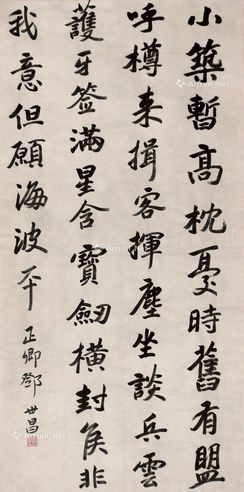 小築暫高枕憂時舊有盟
呼樽来揖客揮麈坐談兵雲
護牙签滿星含寶劒橫封侯非
我意但願海波平
正卿鄧世昌